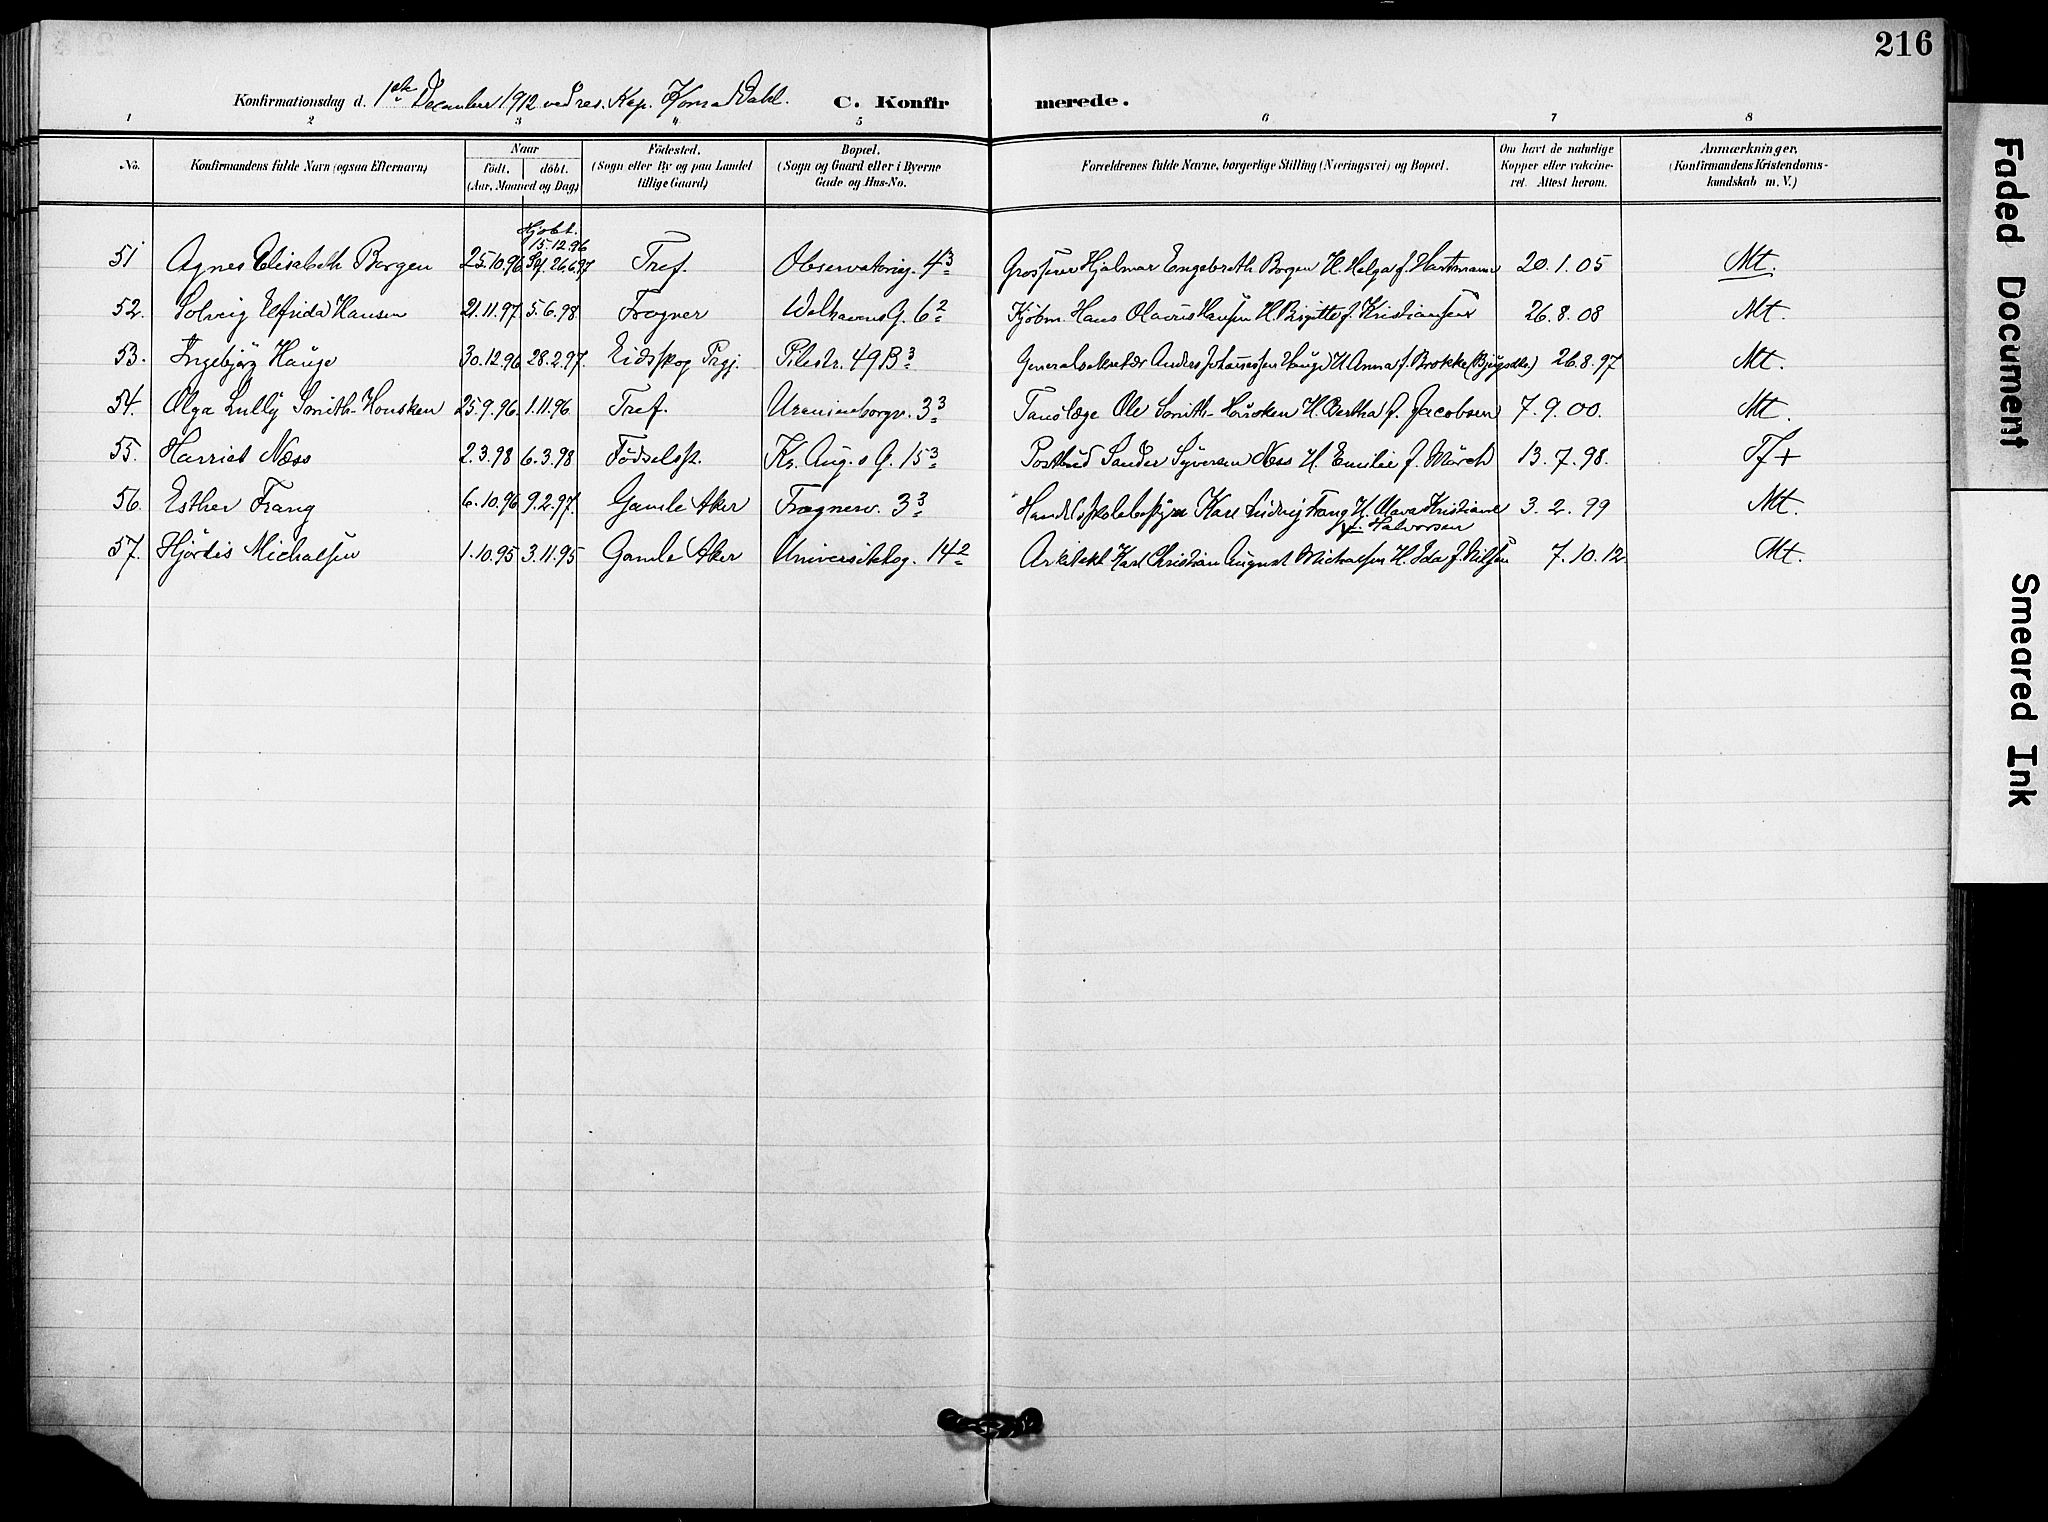 216
Konfirmationsdag d. 1ste December 1912 ved res. Kap. Konrad Dahl. C. Konfirmerede.
1 2 3 4 5 6 7 8
No. Konfirmandens fulde Navn (ogsaa Efternavn) Naar født, døbt. (Aar, Maaned og Dag) Födested. (Sogn eller By og paa Landet tillige Gaard) Bopæl. (Sogn og Gaard eller i Byerne Gade og Hus-No. Forældrenes fulde Navne, borgerlige Stilling (Næringsvei) og Bopæl. Om havt de naturlige Kopper eller vakcineret. Attest herom. Anmærkninger, (Konfirmandens Kristendomskundskab m. V.)
Hjdbt. 15.12.96
51 Agnes Elisabeth Borgen 25.10.96 Stf. 26.6.97 Tref. Observatoriig. 4 3 Grosserer Hjalmar Engebreth Borgen H. Helga f. Hartmann 20.1.05 Mt.
52. Solveig Elfrida Hansen 21.11.97 5.6.98. Frogner Welhavens G. 6 2 Kjøbm. Hans Olavus Hansen H. Birgitte f. Kristiansen 26.8.08 Mt.
53. Ingebjørg Hauge 30.12.96 28.2.97. Eidsskog Prgj. Pilestr. 49 B 3 Generalsekretær Anders Johannessen Hauge H. Anna f. Brokke 26.8.97 Mt.
54. Olga Lully Smith-Housken 25.9.96 1.11.96 Tref. Uranienborgv. 3 3 Tandlæge Ole Smith-Housken H. Bertha f. Jacobsen 7.9.00. Mt.
55. Harriet Næss 2.3.98 6.3.98 Födselsst. Kr. Aug.s G. 15 3 Postbud Sander Syversen Næss H. Emilie f. Mörch 13.7.98. Tf +
56. Esther Frang 6.10.96 9.2.97. Gamle Aker Frognerv. 3 3 Handelsskolebestyrer Karl Ludvig Frang H. Mara Kristiane f. Halvorsen 3.2.99 Mt.
57. Hjördis Michalsen 1.10.95 3.11.95 Gamle Aker Universitetsg. 14 2 Arkitekt Karl Christian August Michalsen H. Ida f. Nilsen 7.10.12. Mt.
Faded Document
Smeared Ink